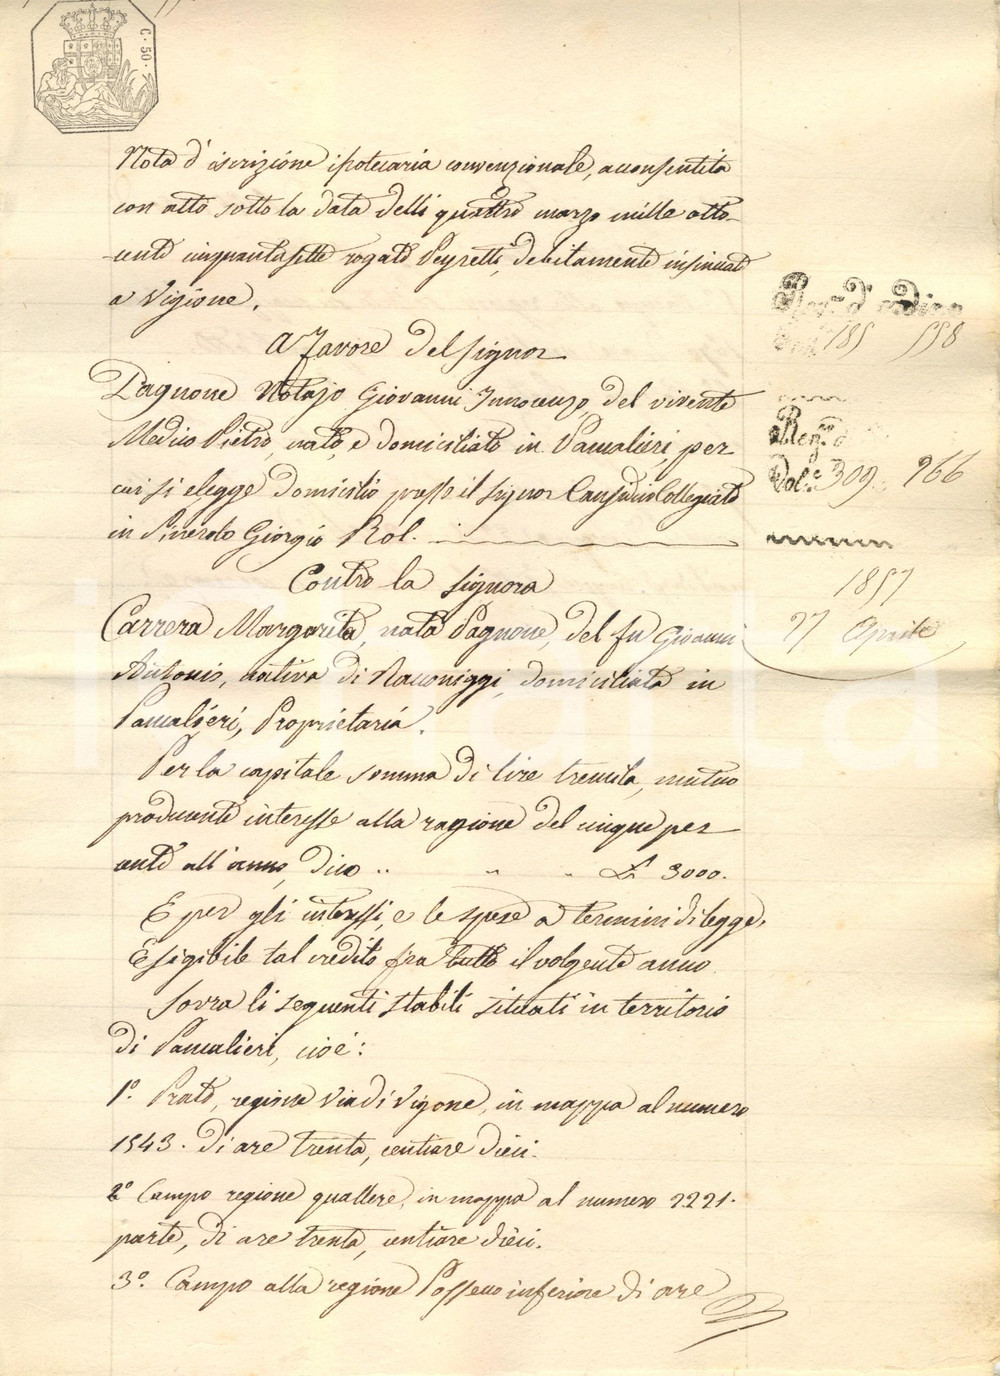 C. 50.
Nota d'iscrizione ipotecaria convenzionale, acconsentita
con atto sotto la data delli quattro marzo mille otto-
-cento cinquantasette rogato Peyretti, debitamente insinuato
a Vigone.
A favore del Signor
Pagnone Notajo Giovanni Innocenzo del vivente
Medico Pietro, nato, e domiciliato in Pancalieri, per
cui si elegge domicilio presso il signor Causidico Collegiato
in Pinerolo Giorgio Rol.
Contro la Signora
Carrera Margarita, nata Pagnone, del fu Giovanni
Antonio, nativa di Racconiggi, domiciliata in
Pancalieri, Proprietaria.
Per la capitale somma di lire tremila, mutuo
producente interesse alla ragione del cinque per
cento all'anno, dico .. " " £ 3000.
E per gli interessi, e le spese a termini di legge.
Esigibile tal credito fra tutto il volgente anno
Sovra li seguenti stabili situati in territorio
di Pancalieri, cioè:
1º. Prato, regione Via di Vigone, in mappa al numero
1543. di are trenta, centiare dieci.
2º Campo regione quallere, in mappa al numero 2221.
parte, di are trenta, centiare dieci.
3º. Campo alla regione Possesso inferiore di are
Reg.º d'ordine
185 558
Reg.º d
Vol.º 309. 966
1857
27 Aprile